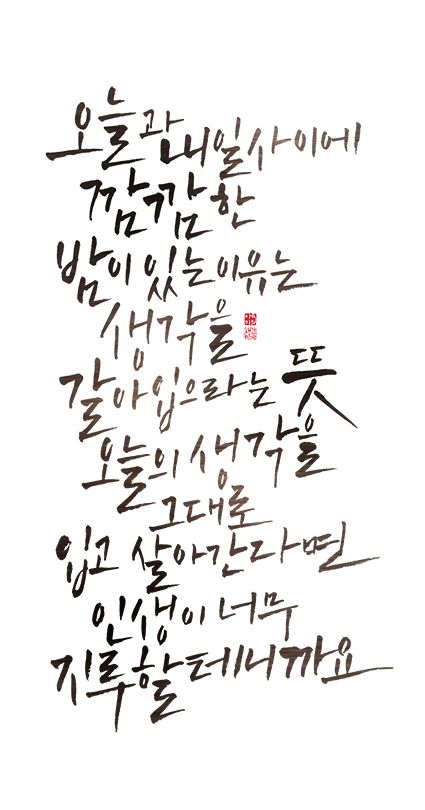 오늘과 내일 사이에
깜깜한
밤이 있는 이유는
생각을
갈아입으라는 뜻
오늘의 생각을
그대로
입고 살아간다면
인생이 너무
지루할 테니까요